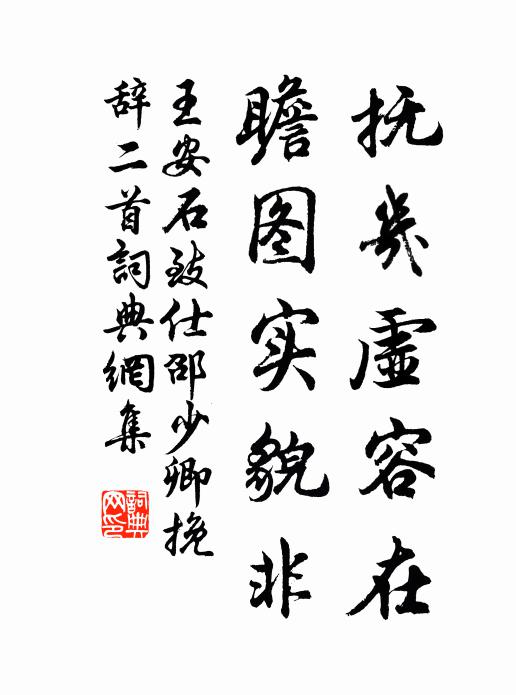 抚几虚容在
瞻图实貌非
王安石致仕邵少卿挽
辞二首詞典網集
詞典網印